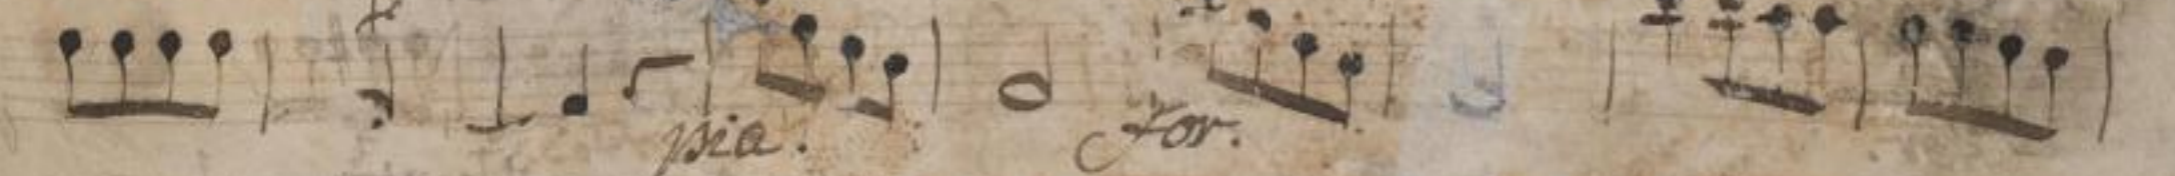 pia. for.